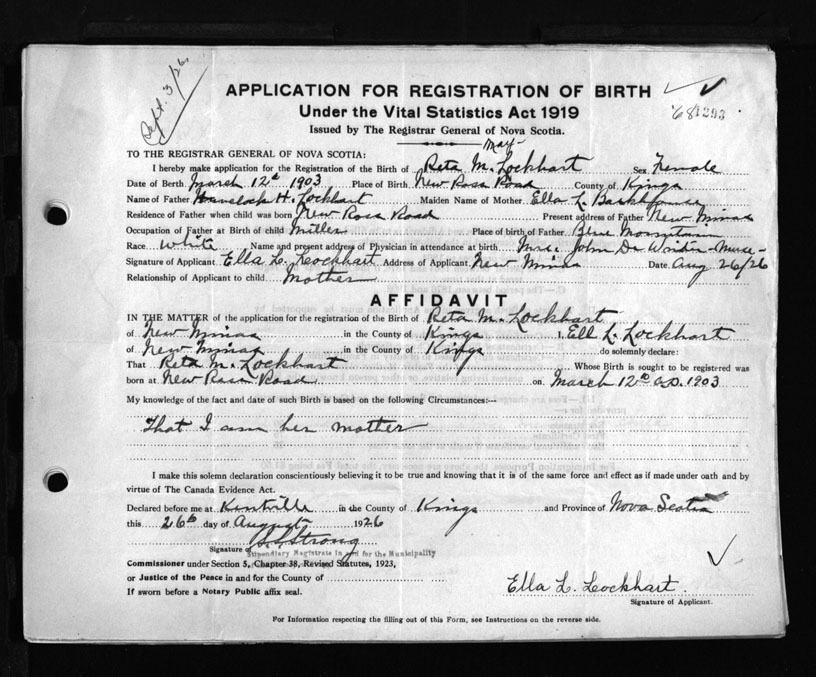 Sept. 3/26
APPLICATION FOR REGISTRATION OF BIRTH
Under the Vital Statistics Act 1919
Issued by The Registrar General of Nova Scotia.
TO THE REGISTRAR GENERAL OF NOVA SCOTIA:
May
I hereby make application for the Registration of the Birth of Reta M. Lockhart Sex Female
Date of Berth March 12th 1903 Place of Birth New Ross Road County of Kings
Name of Father Havelock H. Lockhart Maiden Name of Mother Ella L.
Residence of Father when child was born New Ross Road Present address of Father New Minas
Occupation of Father at Birth of child Miller Place of birth of Father Blue Mountain
Race white Name and present address of Physician in attendance at birth Mrs. John - Nurse -
Signature of Applicant Ella L. Lockhart Address of Applicant New Minas Date Aug 26/26
Relationship of Applicant to child Mother
AFFIDAVIT
IN THE MATTER of the application for the registration of the Birth of Reta M. Lockhart
of New Minas in the County of Kings I, Ell L. Lockhart
of New Minas in the County of Kings do solemnly declare:
That Reta M. Lockhart Whose Birth is sought to be registered was
born at New Ross Road on March 12th A.D. 1903
My knowledge of the fact and date of such Birth is based on the following Circumstances:—
That I am her mother
I make this solemn declaration conscientiously believing it to be true and knowing that it is of the same force and effect as if made under oath and by
virtue of The Canada Evidence Act.
Declared before me at Kentville in the County of Kings and Province of Nova Scotia
this 26th day of August 1926
Signature of Strong
Stipendiary Magistrate in and for the Municipality
Commissioner under Section 5, Chapter 38, Revised Statutes, 1923,
or Justice of the Peace in and for the County of
If sworn before a Notary Public affix seal.
Ella L. Lockhart.
Signature of Applicant.
For Information respecting the filling out of this Form, see Instructions on the reverse side.